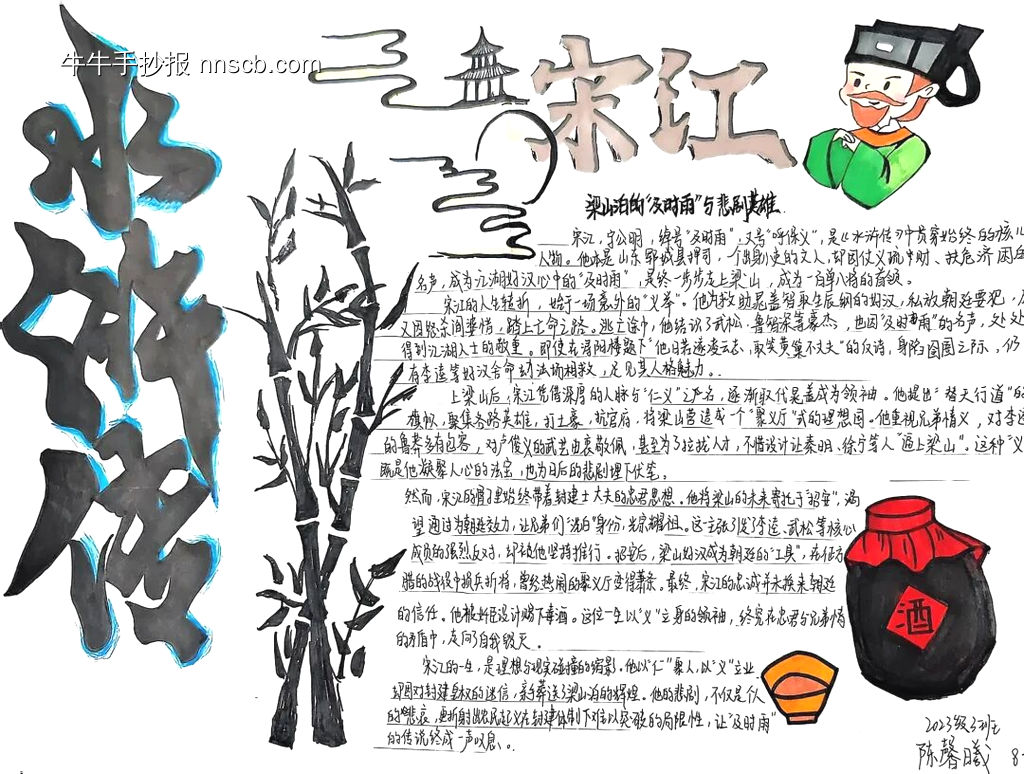 牛牛手抄报 nnscb.com
水浒传
宋江
梁山泊的“及时雨”与悲剧英雄
宋江，字公明，绰号“及时雨”，又号“呼保义”，是《水浒传》中贯穿始终的核心
人物。他本是山东郓城县押司，一个出身小吏的文人，却因仗义疏财、扶危济困的
名声，成为江湖好汉心中的“及时雨”，是终一步步走上梁山，成为一百单八将的首领。
宋江的人生转折，始于一场意外的“义举”。他为救助晁盖等智取生辰纲的好汉，私放朝廷要犯，后
又因怒杀阎婆惜，踏上亡命之路。逃亡途中，他结识了武松、鲁智深等豪杰，也因“及时雨”的名声，处处
得到江湖人士的敬重。即使在浔阳楼题下“他日若遂凌云志，敢笑黄巢不丈夫”的反诗，身陷囹圄之际，仍
有李逵等好汉舍命劫法场相救，足见其人格魅力。
上梁山后，宋江凭借深厚的人脉与“仁义”之名，逐渐取代晁盖成为领袖。他提出“替天行道”的
旗帜，聚集各路英雄，打土豪、抗官府，将梁山营造成一个“聚义厅”式的理想国。他重视兄弟情义，对李逵
的鲁莽多有包容，对卢俊义的武艺由衷敬佩，甚至为了拉拢人才，不惜设计让秦明、徐宁等人“逼上梁山”。这种“义”
既是他凝聚人心的法宝，也为日后的悲剧埋下伏笔。
然而，宋江的骨子里始终带着封建士大夫的忠君思想。他将梁山的未来寄托于“招安”，渴
望通过为朝廷效力，让兄弟们“洗白”身份，光宗耀祖。这一主张引发了李逵、武松等核心
成员的强烈反对，却被他坚持推行。招安后，梁山好汉成为朝廷的“工具”，在征方
腊的战役中损兵折将，曾经热闹的聚义厅变得萧条。最终，宋江的忠诚并未换来朝廷
的信任。他被奸臣设计赐下毒酒。这位一生以“义”立身的领袖，终究在忠君与兄弟情
的矛盾中，走向了自我毁灭。
宋江的一生，是理想与现实碰撞的缩影。他以“仁”聚人，以“义”立业，
却因对封建皇权的迷信，亲手葬送了梁山泊的辉煌。他的悲剧，不仅是个人
的悲哀，更折射出农民起义在封建体制下难以突破的局限性，让“及时雨”
的传说终成一声叹息。
酒
2023级3班
陈馨曦